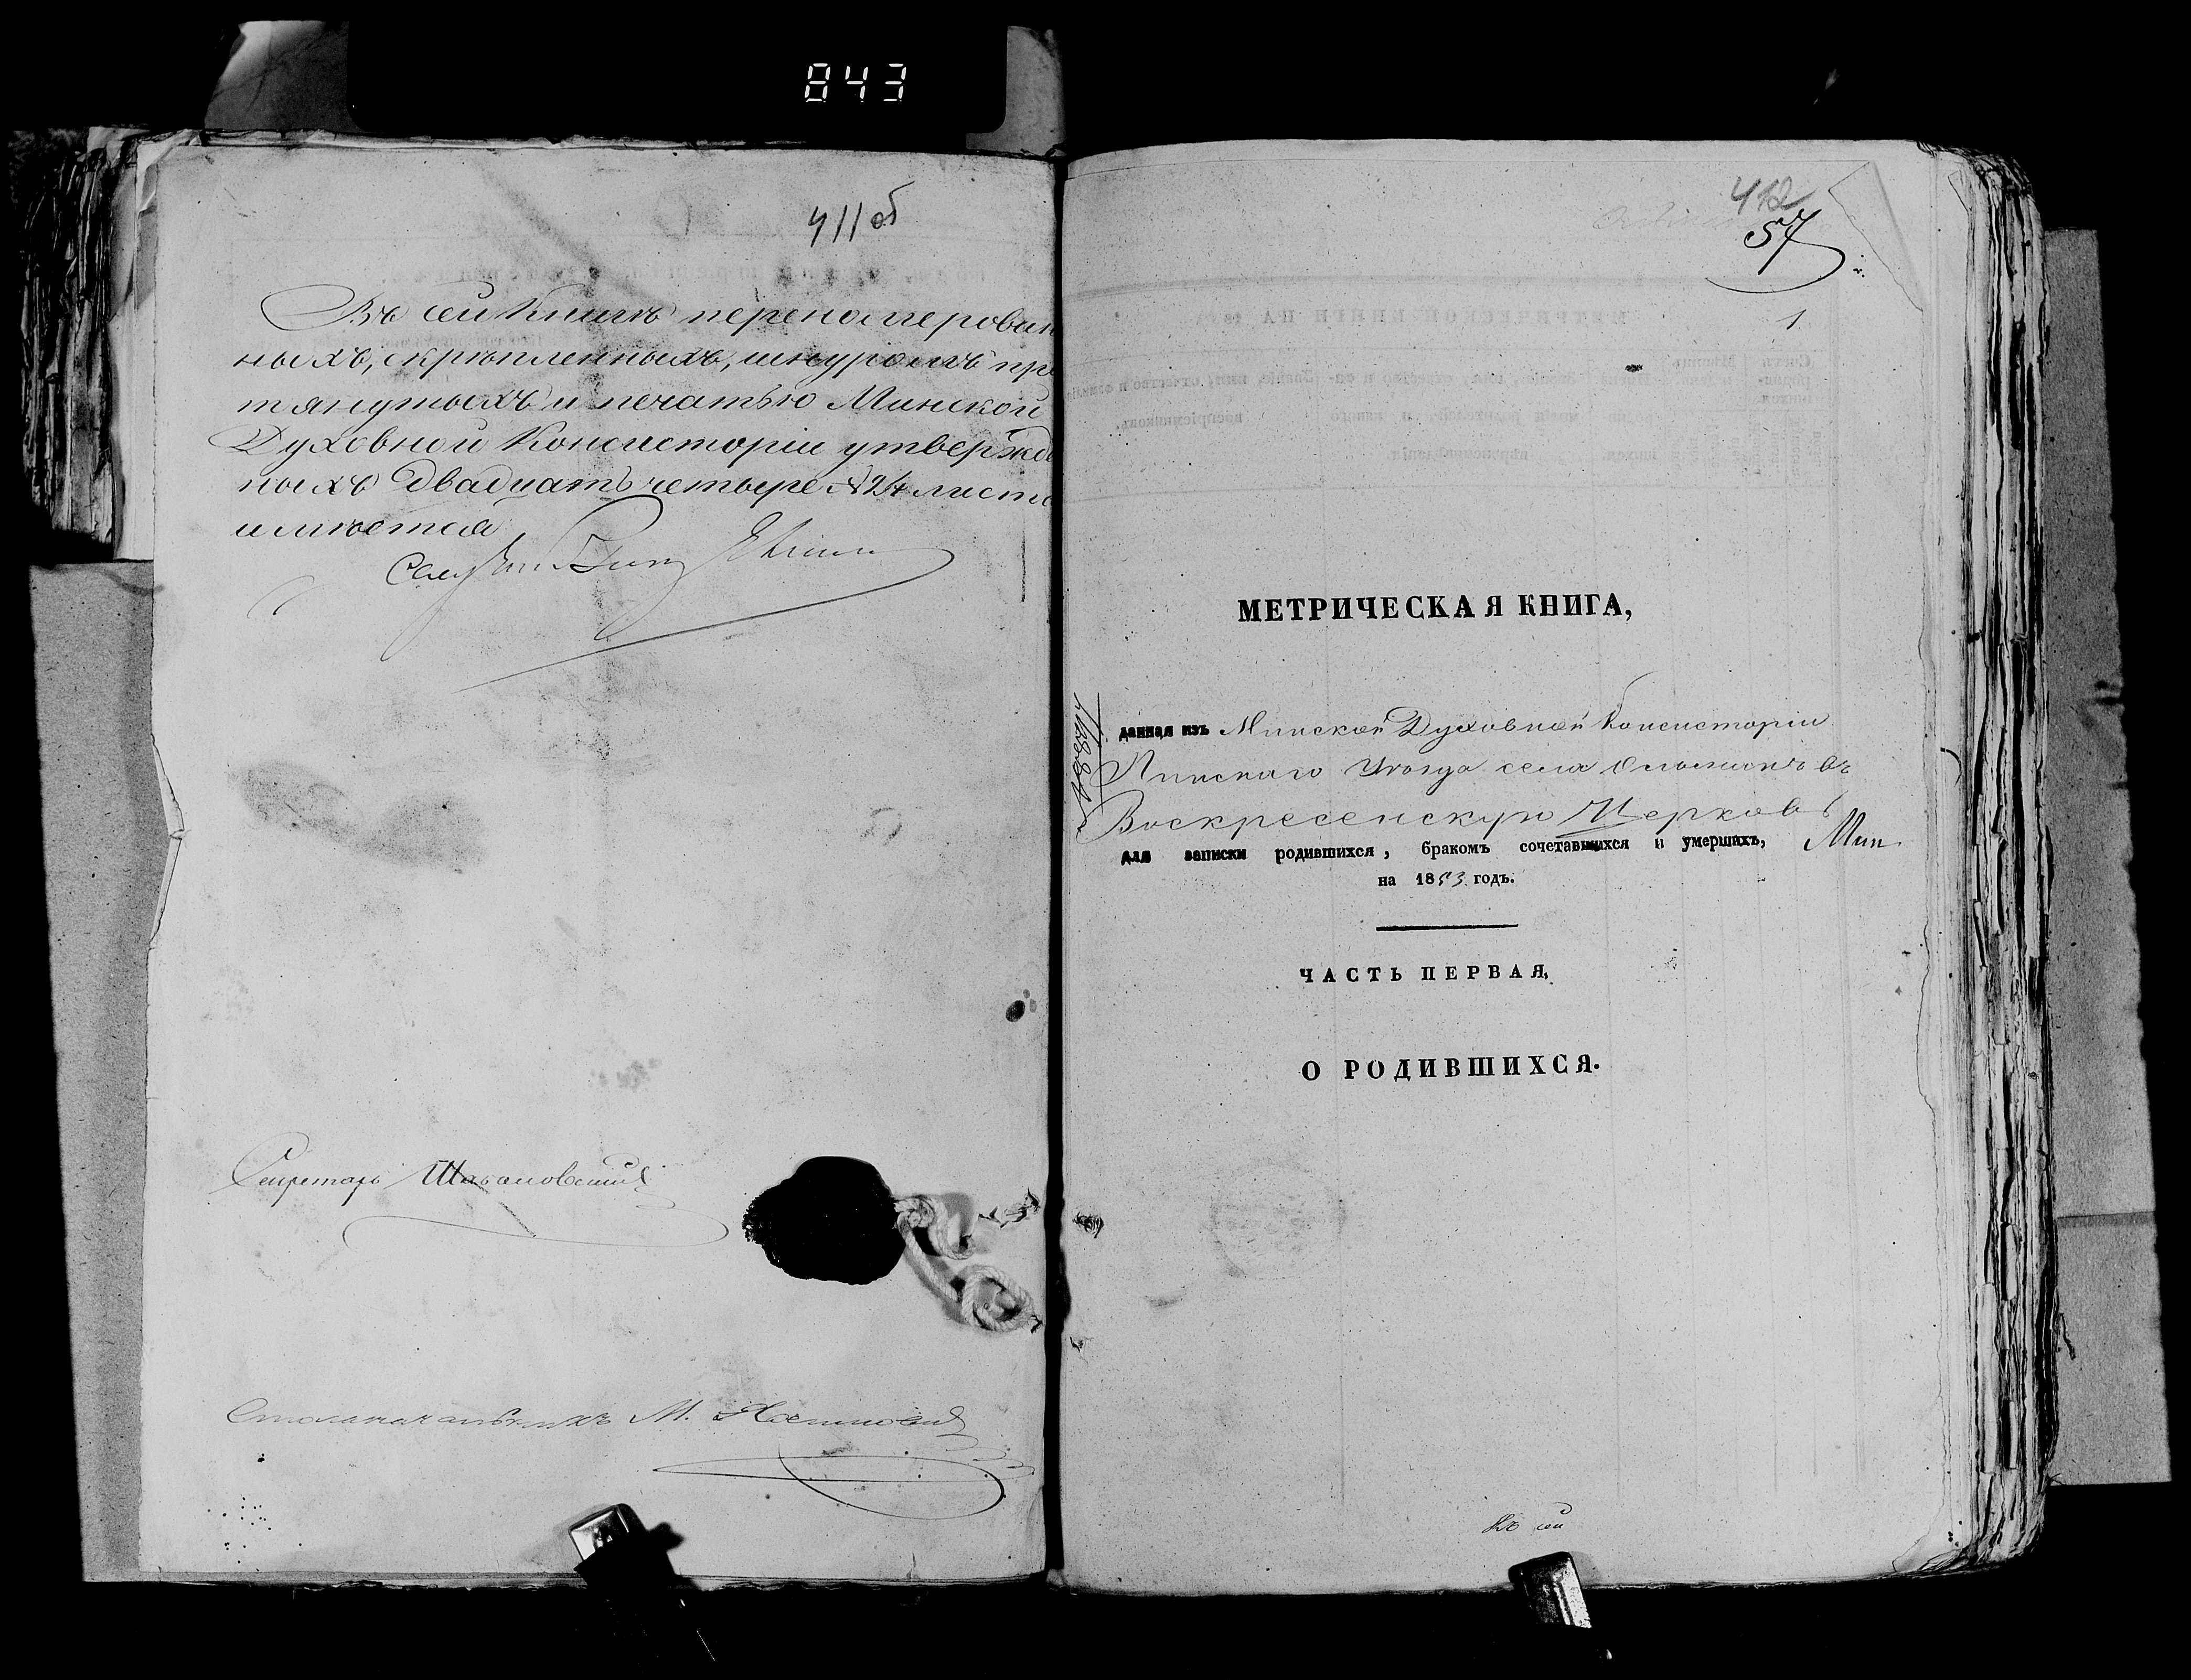 843
411об
Въ сей Книгѣ перенумерован
ныхъ, скрѣпленныхъ, шнуромъ про
тянутыхъ и печатью Минской
Духовной Консисторіи утвержде
ныхъ двадцать четыре № 24 листа
имѣется
Секретарь
Столоначальникъ М.
412
57
1
МЕТРИЧЕСКАЯ КНИГА,
данная изъ Минской Духовной Консисторіи
Пинскаго Уѣзда села въ
Воскресенскую Церковь
для записки родившихся, бракомъ сочетавшихся и умершихъ, Мин
на 1853 годъ.
ЧАСТЬ ПЕРВАЯ,
О РОДИВШИХСЯ.
Къ сей